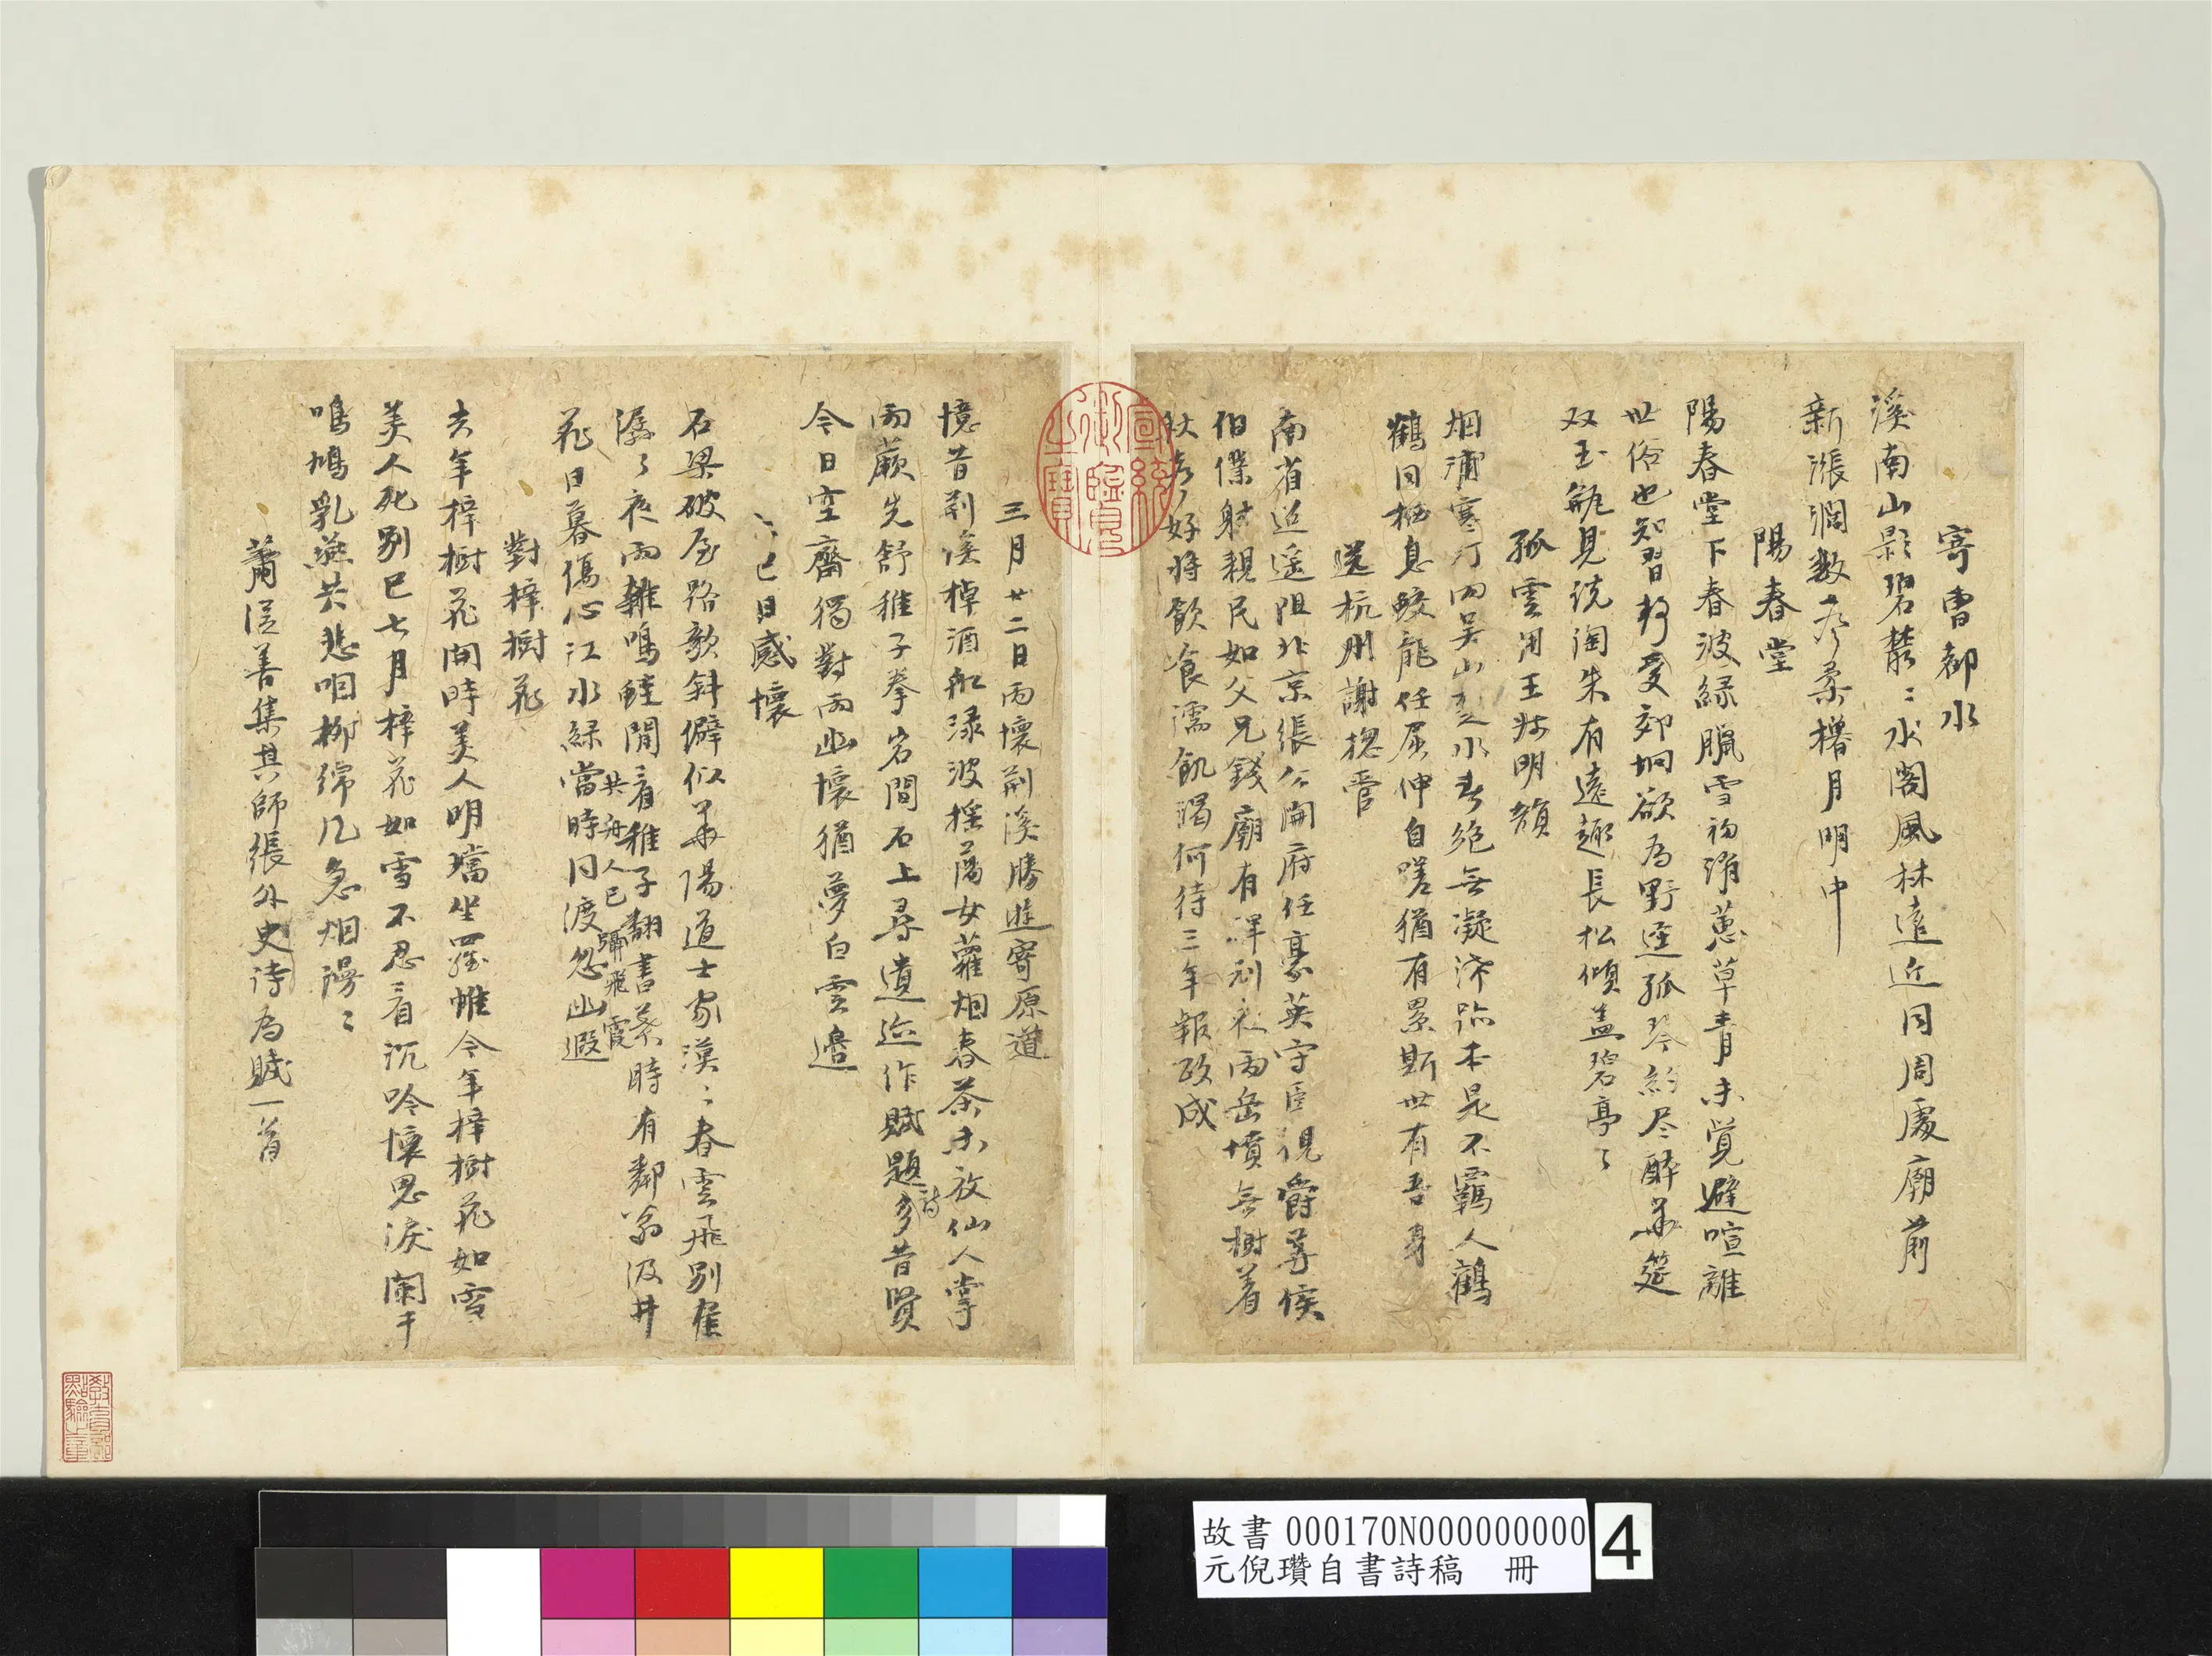 寄曹都水
溪南山影碧叢〻水閣風林遠近同周處廟前
新漲潤數聲柔櫓月明中
陽春堂
陽春堂下春波綠臘雪初消蕙草青未覺避喧離
世俗也知習靜愛郊坰欲為野逕孤琴約盡醉華筵
双玉瓶見說陶朱有遠趣長松傾盖碧亭〻
孤雲用王叔明韻
烟浦寒汀而吳山楚水春絕無凝滯跡本是不羈人鶴
鶴同栖息蛟龍任屈伸自嗟猶有累斯世有吾身
送杭州謝總管
南省迢遥阻北京張公開府任豪英守臣視爵尊侯
伯僕射親民如父兄錢廟有碑刓夜雨岳墳無樹着
秋聲好將飲食濡飢渴何待三年報政成
三月廿二日雨懷荊溪勝遊寄原道
憶昔荊溪棹酒舡淥波搖蕩女蘿烟春茶未放仙人掌
雨蕨先舒稚子拳岩間石上尋遺迹作賦題詩多昔賢
今日空齋獨對雨幽懷猶夢白雲邊
上巳日感懷
石梁破屋路欹斜僻似華陽道士家漠〻春雲飛別隺
潺〻夜雨雜鳴蛙閒看稚子翻書葉時有鄰翁汲井
共舟人已弱飛霞
花日暮傷心江水綠當時同渡忽幽遐
對梓樹花
去年梓樹花開時美人明璫坐羅帷今年梓樹花如雪
美人死別已七月梓花如雪不忍看沉吟懷思淚闌干
鳴鳩乳燕共悲咽柳綿几急烟漫〻
蕭從善集其師張外史詩為賦一首
宣統御覽之寶
故書 000170N000000000
元倪瓚自書詩稿 冊
4